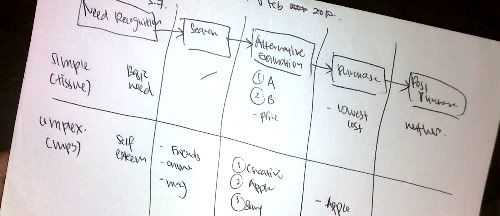 Feb 2012.
Need Recognition
Search
Alternative
Evaluation
Purchase
Post
Purchase
Simple
(tissue)
Basic
need
① A
② B
- price
- lowest
cost
complex.
(mp3)
Self
esteem
- Friends
- online
- mag
① Creative
② Apple
③ Sony
- Apple